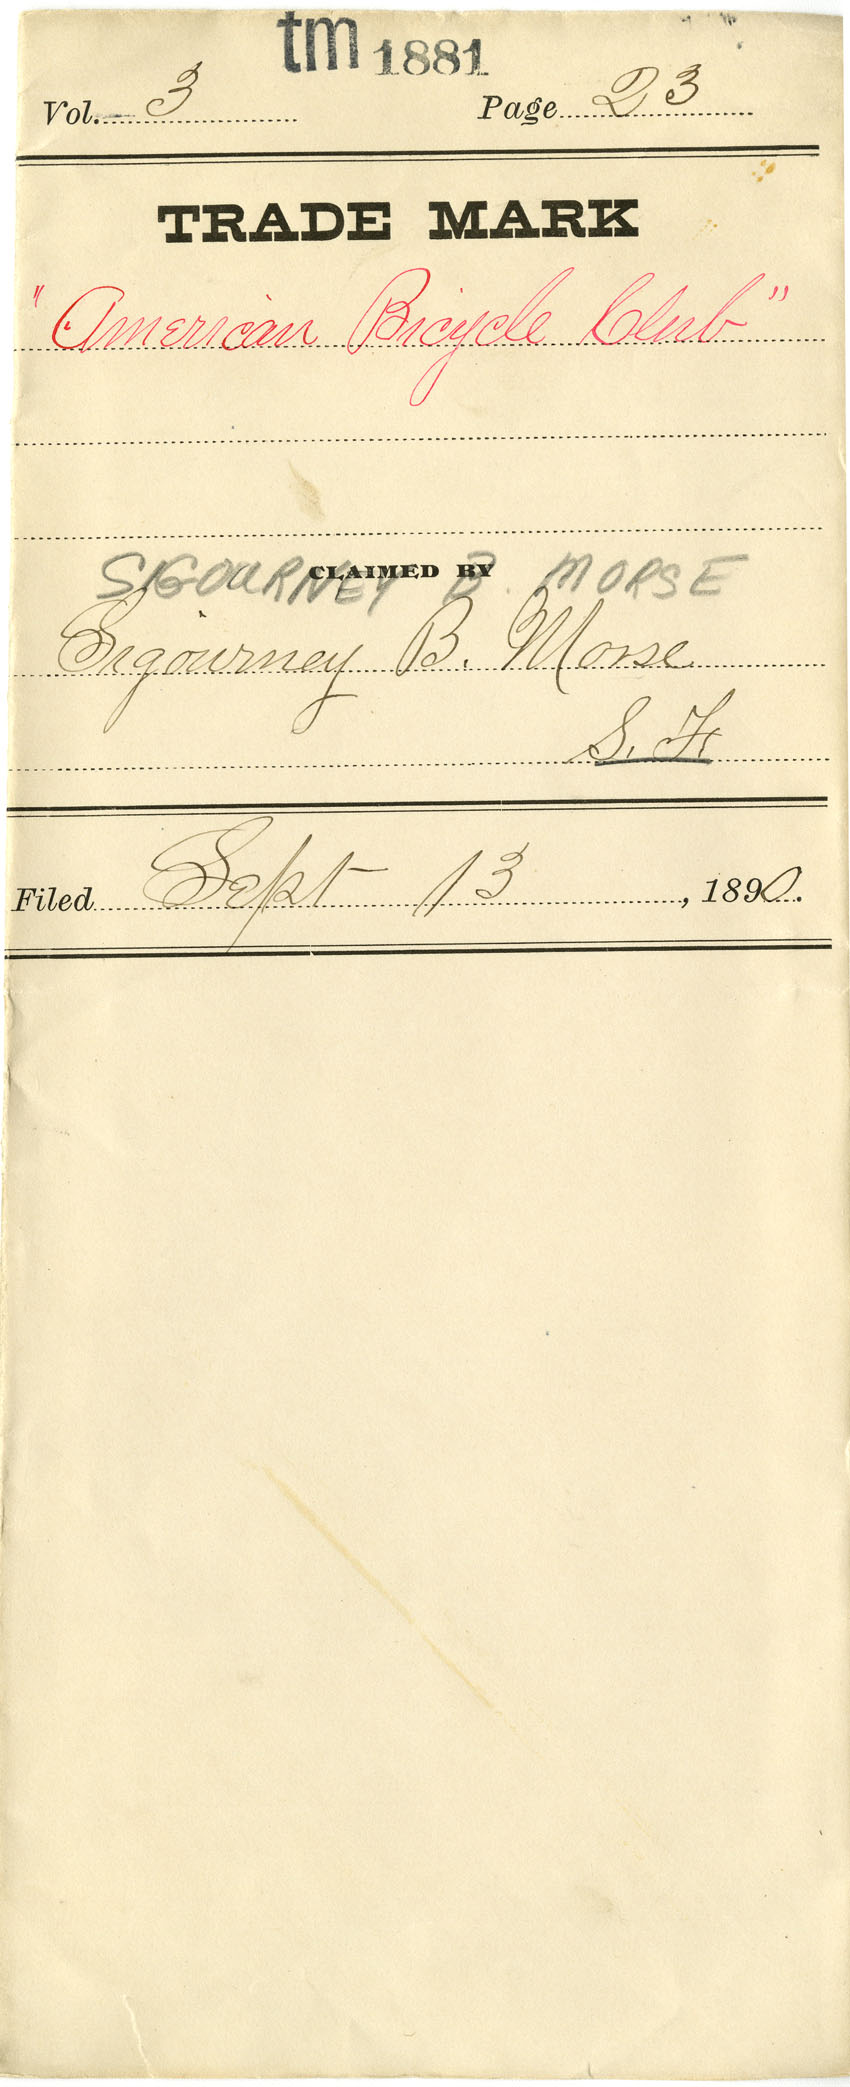 tm 1881
Vol. 3 Page 23
TRADE MARK
"American Bicycle Club"
CLAIMED BY
SIGOURNEY B. MORSE
Sigourney B. Morse
S. F.
Filed Sept 13, 1890.